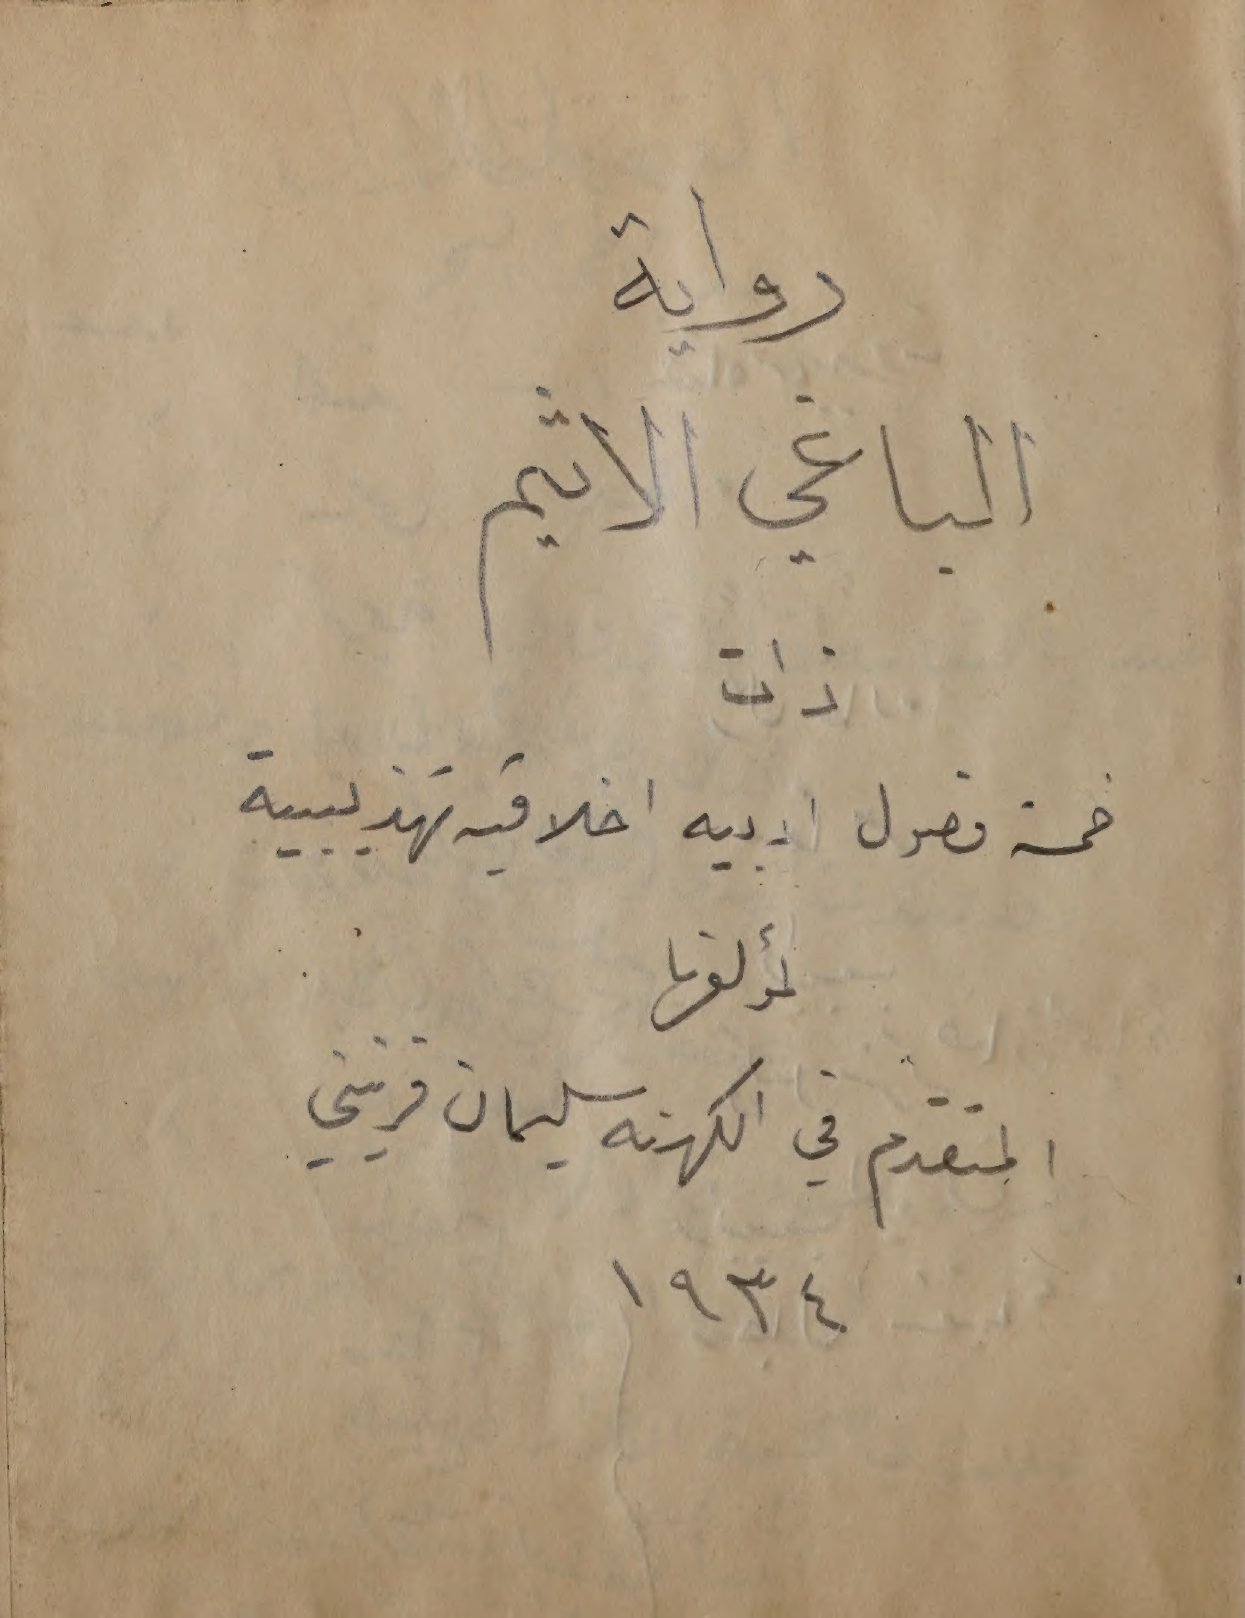 رواية
الباغي الاثيم
ذات
خمسة فصول ادبيه اخلاقيه تهذيبية
لمؤلفها
المتقدم في الكهنه سليمان
١٩٣٤